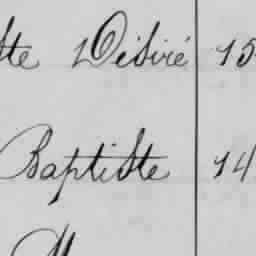 tte Désiré 15
Baptiste 14